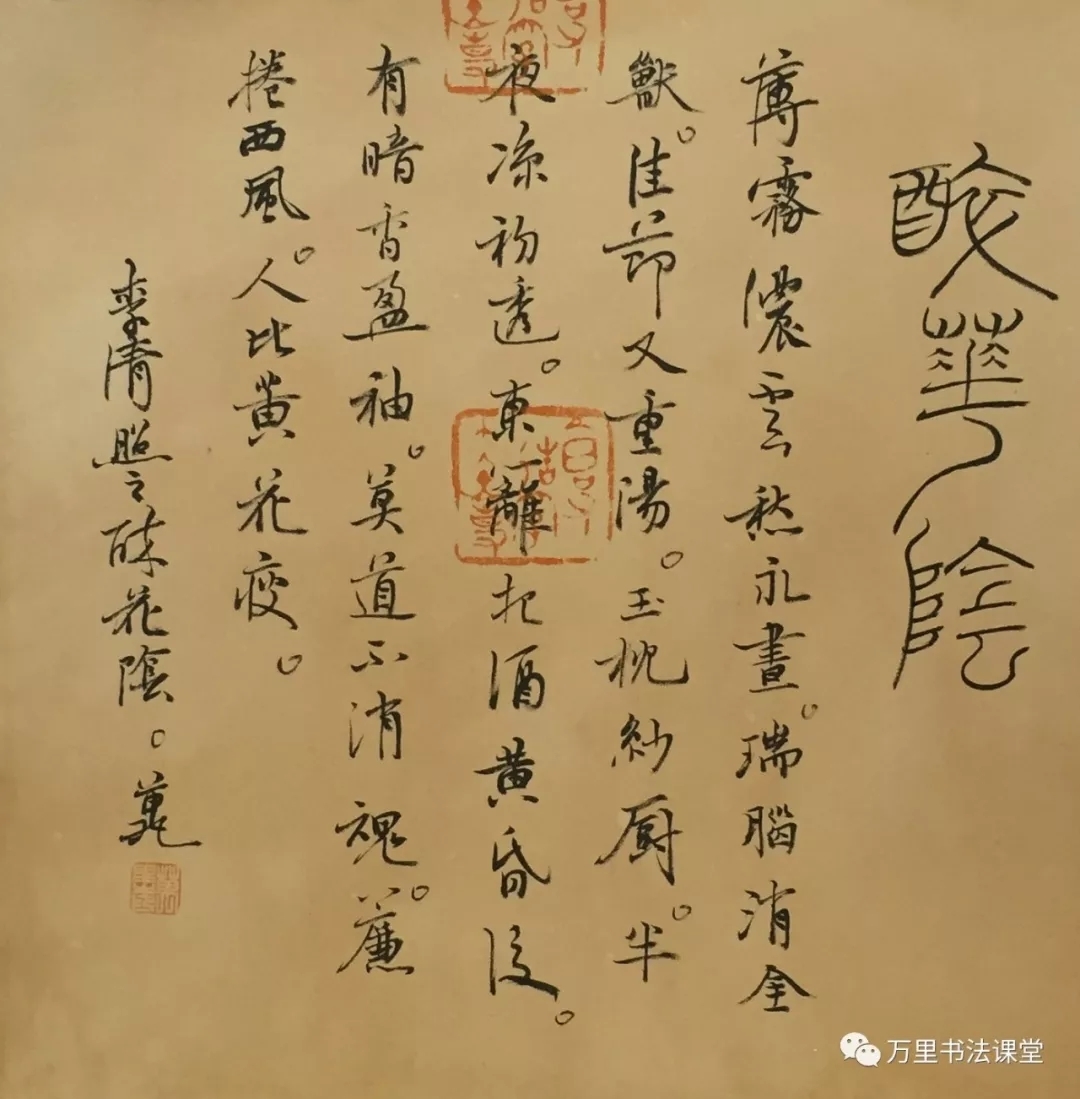 醉華陰
薄霧濃雲愁永晝。瑞腦消金
獸。佳節又重陽。玉枕紗厨。半
夜涼初透。東籬把酒黃昏後。
有暗香盈袖。莫道不消魂。簾
捲西風。人比黃花瘦。
李清照之醉花陰。
万里书法课堂